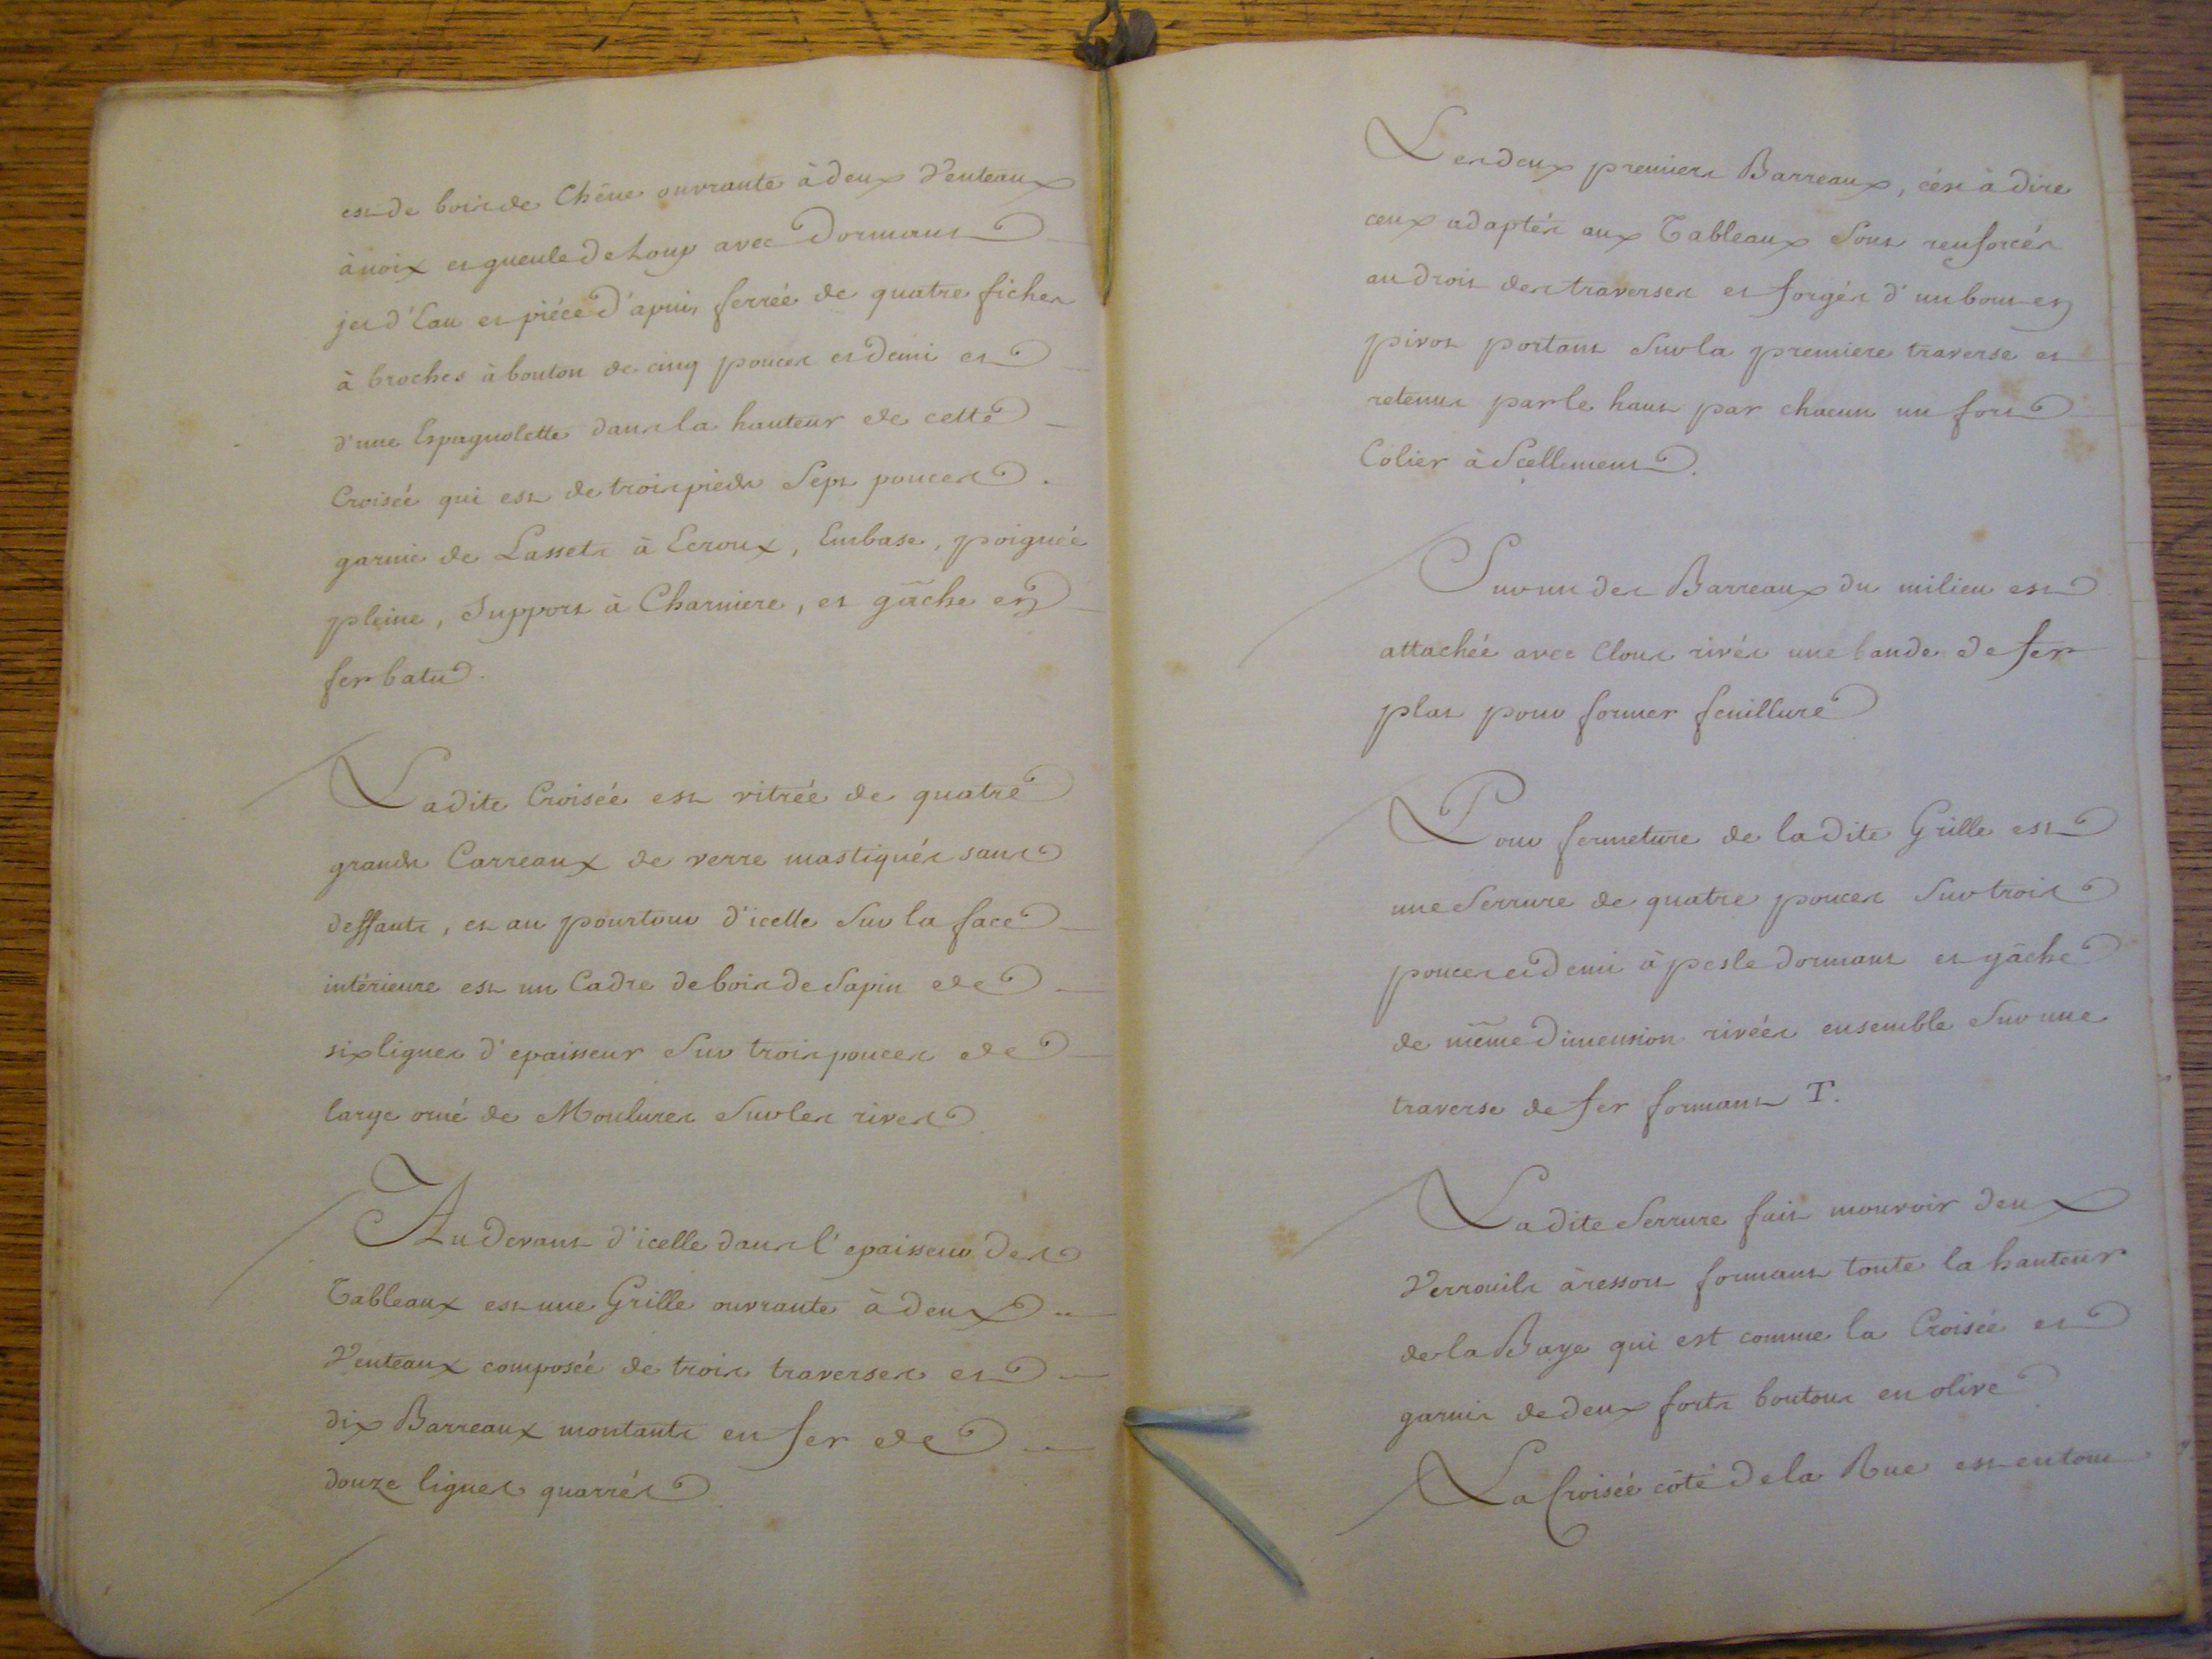 est de bois de Chêne ouvrante à deux Venteaux
à noix et gueule de Loup avec Dormant
jet d'Eau et piéce d'apui, ferrée de quatre fiches
à broches à bouton de cinq pouces et demi et
d'une Espagnolette dans la hauteur de cette
Croisée qui est de trois pieds Sept pouces.
garnie de Lassets à Ecroux, Embase, poignée
pleine, Support à Charniere, et gâche en
fer batu.
La dite Croisée est vitrée de quatre
grands Carreaux de verre mastiqués sans
deffauts, et au pourtour d'icelle Sur la face
intérieure est un Cadre de bois de Sapin de
six lignes d'epaisseur Sur trois pouces de
large orné de Moulures Sur les rives
Au devant d'icelle dans l'epaisseur des
Tableaux est une Grille ouvrante à deux
Venteaux composée de trois traverses et
dix Barreaux montants en fer de
douze lignes quarrés
Les deux premiers Barreaux, c'est à dire
ceux adaptés aux Tableaux Sont renforcés
au droit des traverses et forgés d'un bout en
pivot portant Sur la premiere traverse et
retenus par le haut par chacun un fort
Colier à Scellement.
Sur un des Barreaux du milieu est
attachée avec Clous rivés une bande de fer
plat pour former feuillure
Pour fermeture de la dite Grille est
une Serrure de quatre pouces Sur trois
pouces et demi à pesle dormant et gâche
de même Dimension rivées ensemble Sur une
traverse de fer formant T.
La dite Serrure fait mouvoir deux
Verrouils à ressort formant toute la hauteur
de la Baye qui est comme la Croisée et
garnis de deux forts boutons en olive
La Croisée côté de la Rue est en tout